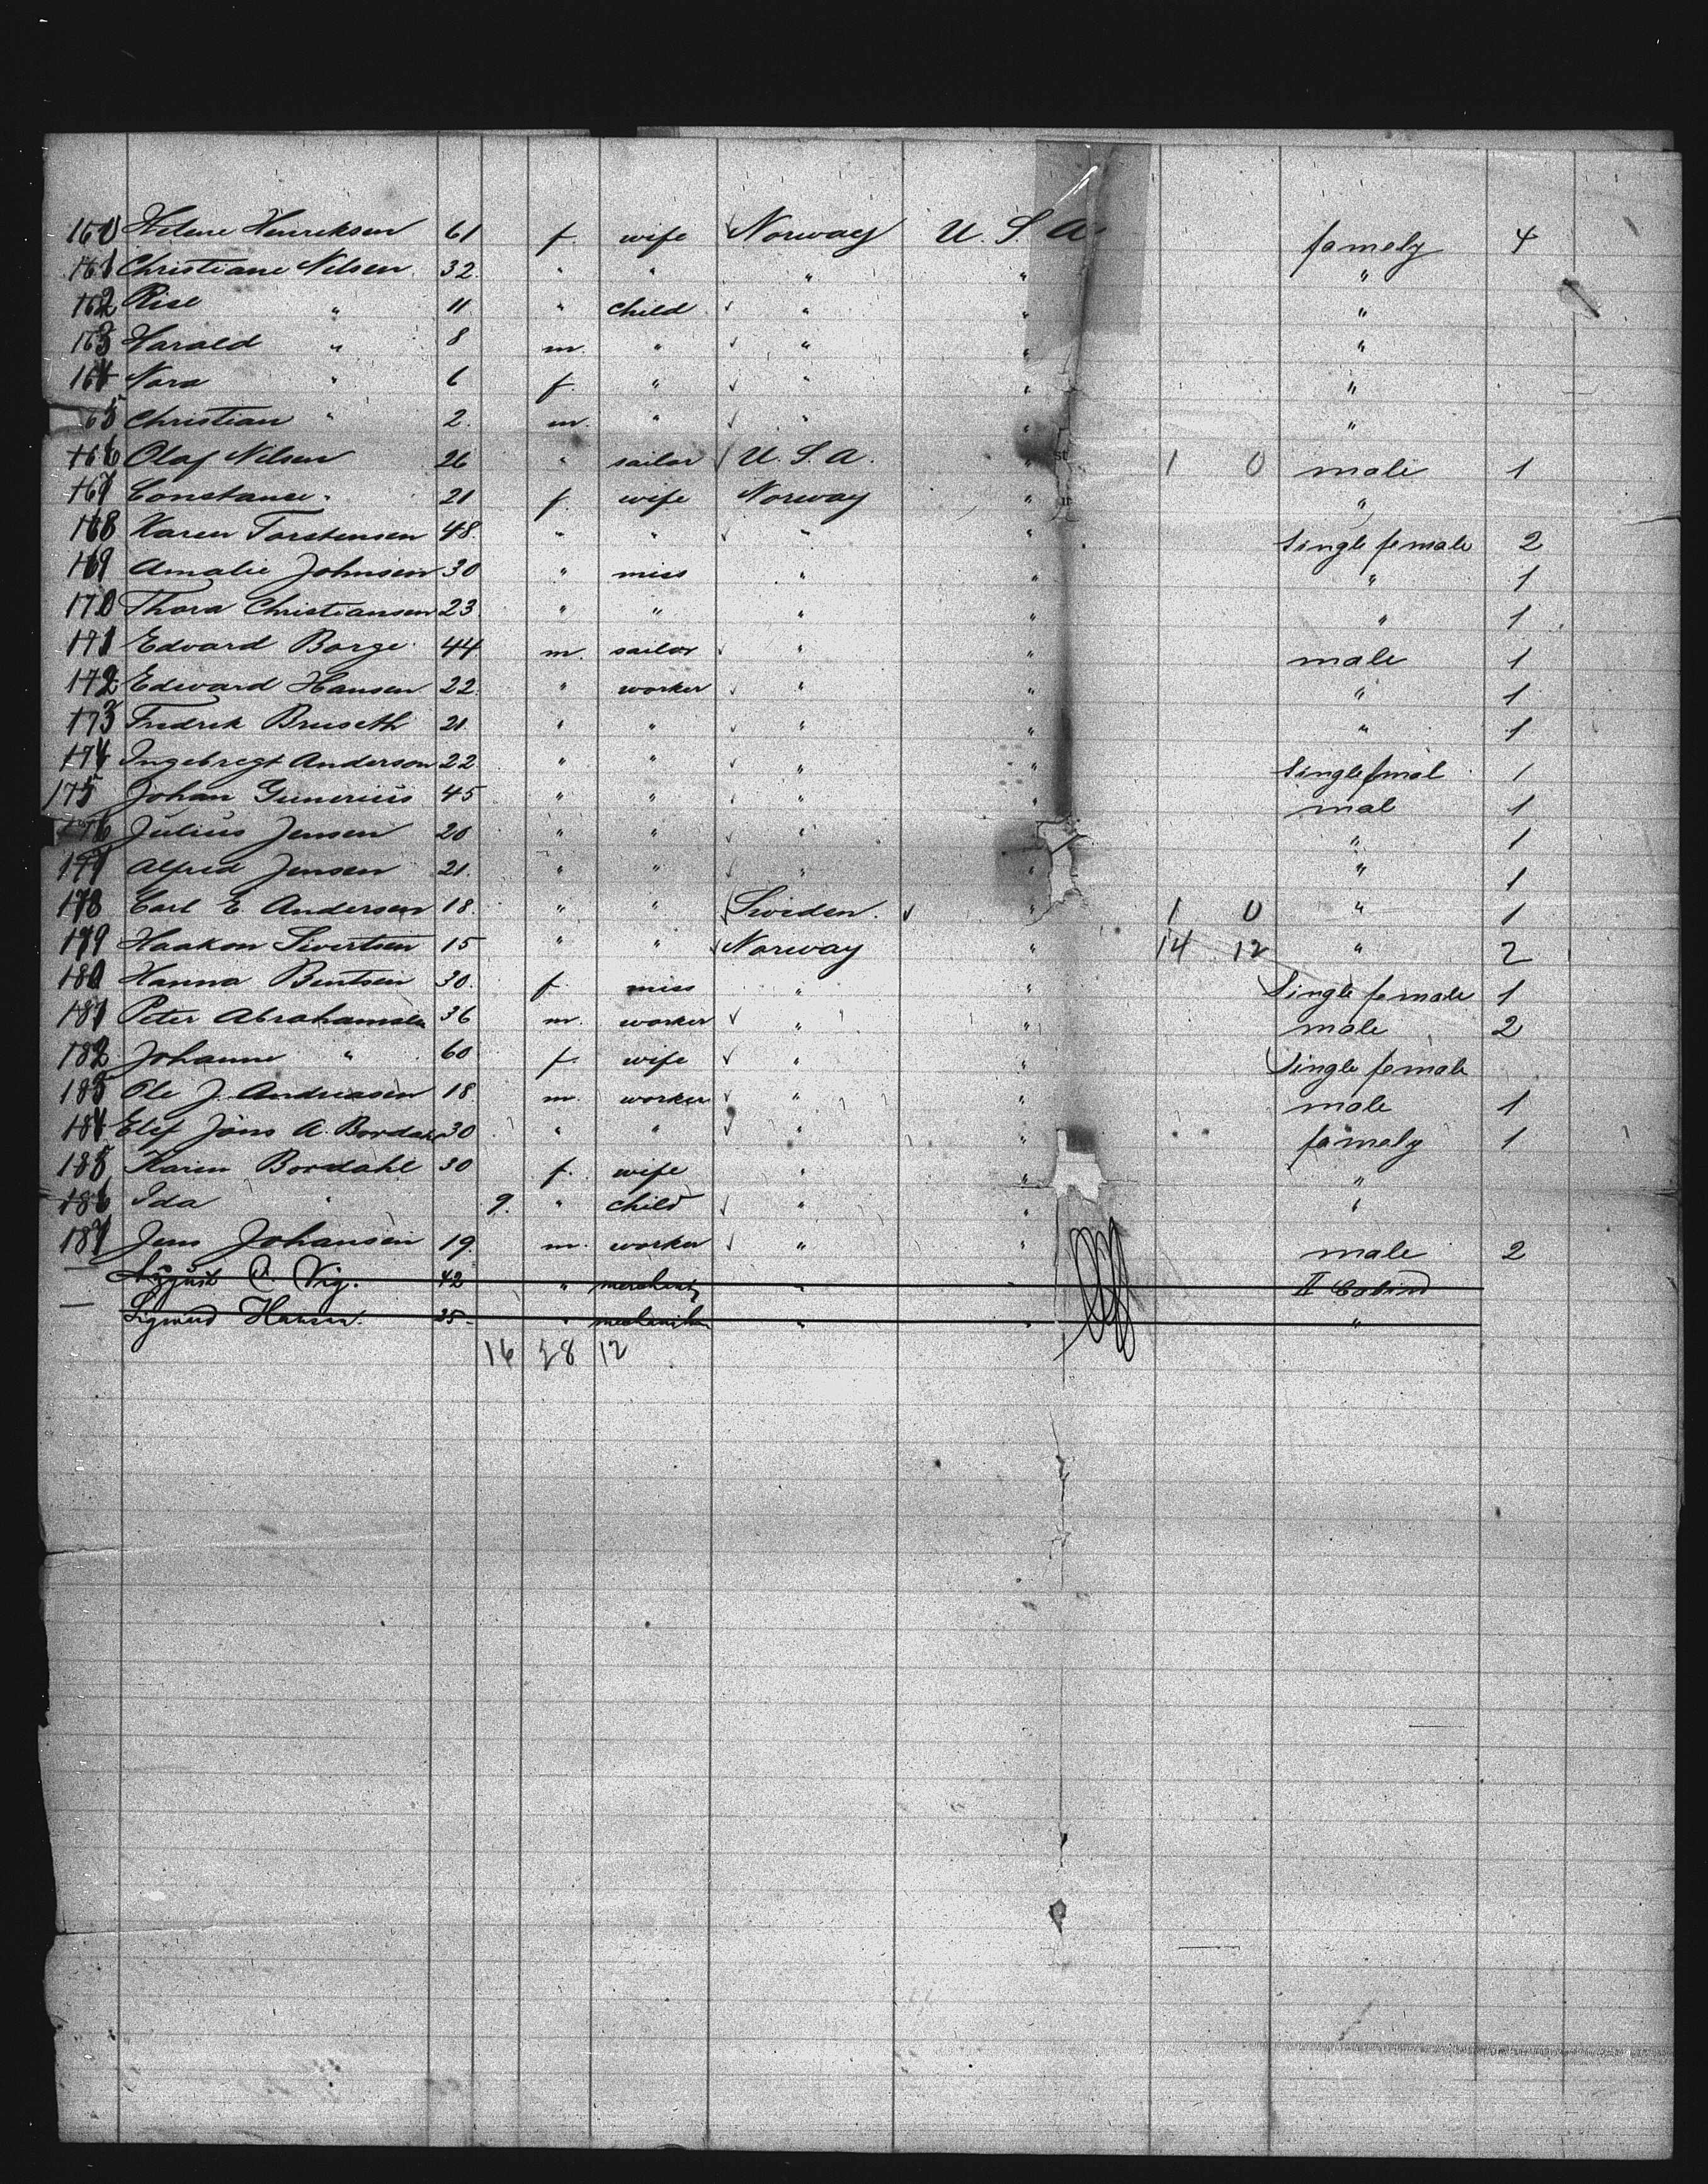 160 Helene Henriksen 61 f. wife Norway U. S. A. famely 4
161 Christiane Nilsen 32. " " " " "
162 Rise " 11 " child " " "
163 Harald " 8 m. " " " "
164 Nora " 6 f. " " " "
165 Christian " 2. m. " " " "
166 Olaf Nilsen 26 " sailor U. S. A. " 1 0 male 1
167 Constance " 21 f. wife Norway " "
168 Karen Torstensen 48. " " " " Single female 2
169 Amalie Johnsen 30 " miss " " " 1
170 Thora Christiansen 23. " " " " " 1
171 Edvard Borge 44 m. sailor " " male 1
172 Edward Hansen 22. " worker " " " 1
173 Fredrik Bruseth 21. " " " " " 1
174 Ingebregt Anderson 22 " " " " Single fmal 1
175 Johan Gunerius 45 " " " " mal 1
176 Julius Jensen 20 " " " " " 1
177 Alfred Jensen 21. " " " " " 1
178 Carl E. Andersen 18. " " Sweden. " 1 0 " 1
179 Haakon Sivertsen 15 " " Norway " 14 12 " 2
180 Hanna Bentsen 30. f. miss " " Single female 1
181 Peter Abrahamsen 36 m. worker " " male 2
182 Johanne " 60 f. wife " " Single female
183 Ole J. Andreasen 18 m. worker " " male 1
184 Elef Jöns A. Bordahl 30 " " " " famely 1
185 Karen Bordahl 30 f. wife " " "
186 Ida " 9. " child " " "
187 Jens Johansen 19. m. worker " " male 2
August Vig. 42 " " " II
Sigmund Hansen. 25 " " " "
16 28 12